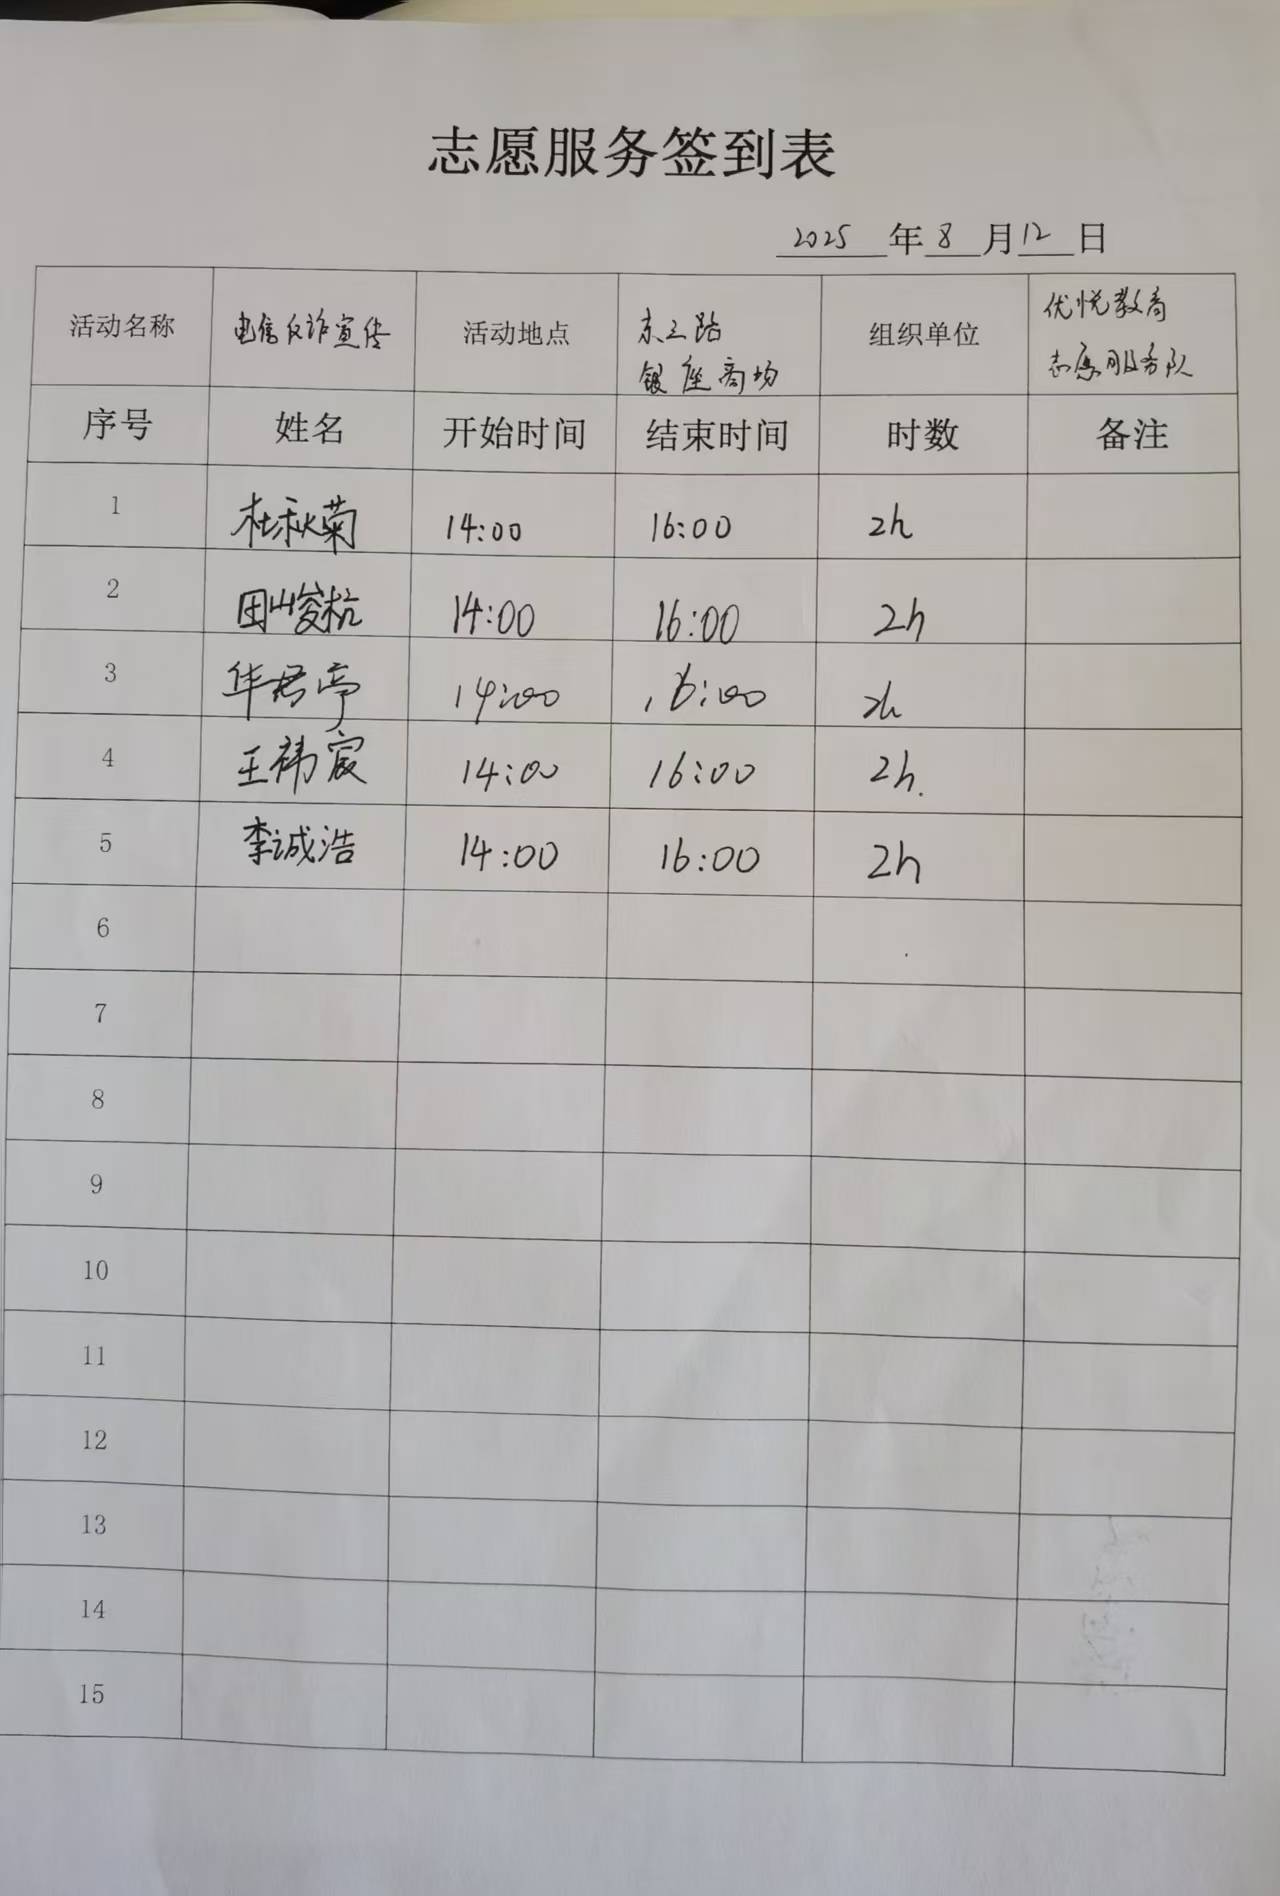 志愿服务签到表
2025年8月12日
活动名称 电信反诈宣传 活动地点 东三路银座商场 组织单位 优悦教育志愿服务队
序号 姓名 开始时间 结束时间 时数 备注
1 杜秋菊 14:00 16:00 2h
2 田峻杭 14:00 16:00 2h
3 华君亭 14:00 16:00 2h
4 王祎宸 14:00 16:00 2h.
5 李诚浩 14:00 16:00 2h
6
7
8
9
10
11
12
13
14
15